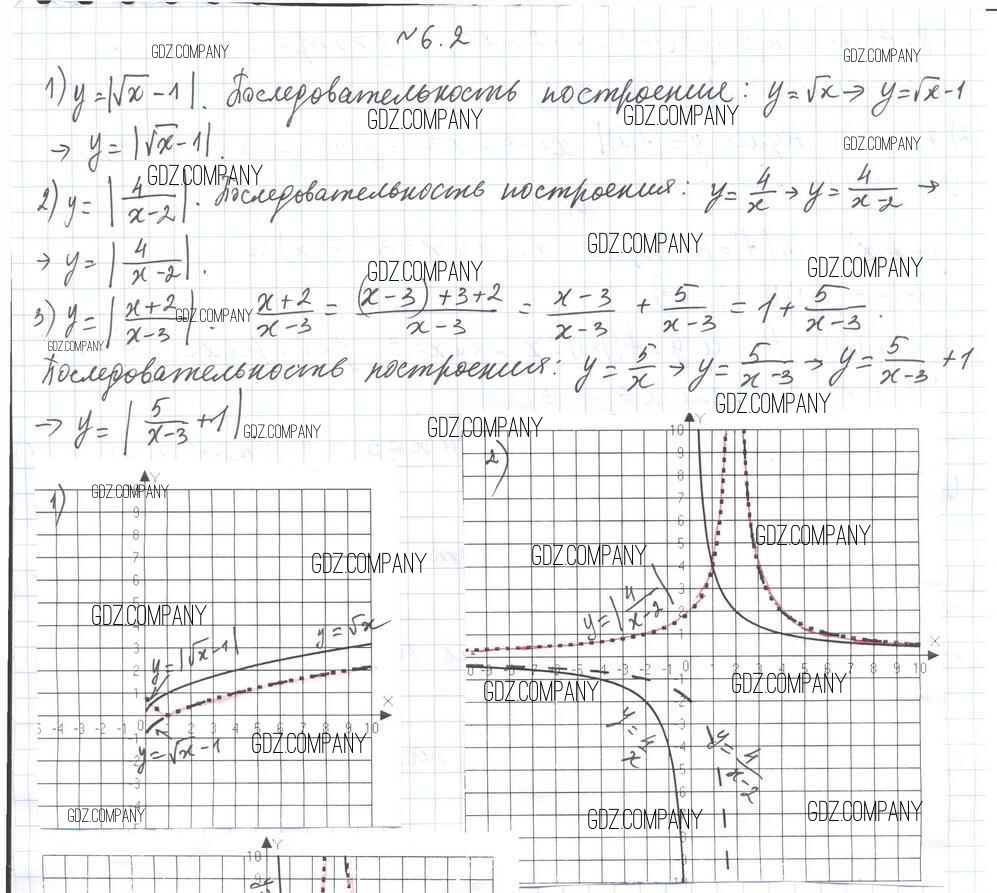 №6.2
GDZ.COMPANY GDZ.COMPANY
1) y=|√x-1|. Последовательность построения: y=√x → y=√x-1
GDZ.COMPANY GDZ.COMPANY
→ y=|√x-1|.
GDZ.COMPANY GDZ.COMPANY
2) y=|4/(x-2)|. Последовательность построения: y=4/x → y=4/(x-2) →
GDZ.COMPANY
→ y=|4/(x-2)|.
GDZ.COMPANY GDZ.COMPANY
3) y=|(x+2)/(x-3)|. (x+2)/(x-3) = ((x-3)+3+2)/(x-3) = (x-3)/(x-3) + 5/(x-3) = 1+5/(x-3).
GDZ.COMPANY GDZ.COMPANY
Последовательность построения: y=5/x → y=5/(x-3) → y=5/(x-3)+1
GDZ.COMPANY
→ y=|5/(x-3)+1|
GDZ.COMPANY GDZ.COMPANY
1)
GDZ.COMPANY
Y
9
GDZ.COMPANY
GDZ.COMPANY
y=√x
y=|√x-1|
3
2
1
X
5 -4 -3 -2 -1 0 1 2 3 4 5 6 7 8 9 10
y=√x-1
GDZ.COMPANY
GDZ.COMPANY
2)
Y
10
9
8
7
6
5
4
3
2
1
GDZ.COMPANY
GDZ.COMPANY
y=|4/(x-2)|
X
-9 -8 -7 -6 -5 -4 -3 -2 -1 0 1 2 3 4 5 6 7 8 9 10
GDZ.COMPANY GDZ.COMPANY
y=4/x
y=4/(x-2)
GDZ.COMPANY GDZ.COMPANY
Y
10